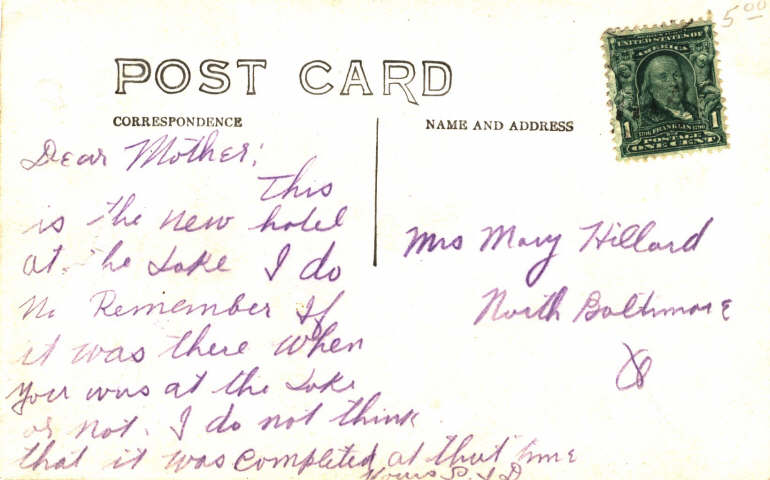 5 00
SERIES 1902
UNITED STATES OF
AMERICA
1706 FRANKLIN 1790
1 1
POSTAGE
ONE CENT
POST CARD
CORRESPONDENCE
NAME AND ADDRESS
Dear Mother:
This
is the new hotel
at the Lake I do
No Remember If
it was there when
your was at the Lake
or not. I do not think
that it was completed at that time
Yours S. I. D
Mrs Mary Hillard
North Baltimore